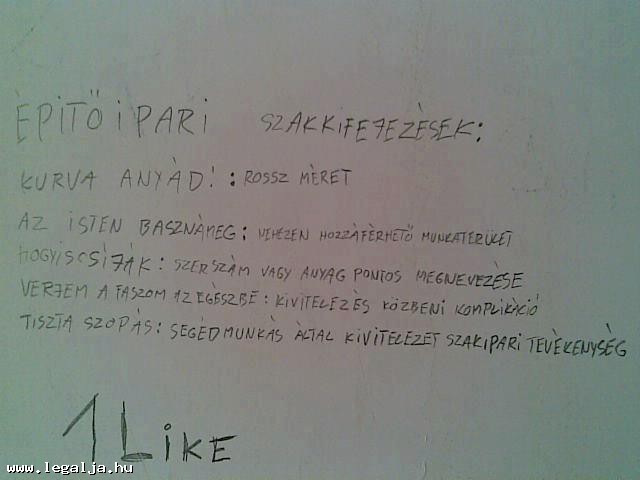 ÈPITŐIPARI SZAKKIFEJEZÈSEK:
KURVA ANYÁD!: ROSSZ MÈRET
AZ ISTEN BASZNÁMEG: NEHEZEN HOZZÁFÈRHETŐ MUNKATERÜLET
HOGYISCSÍJÁK: SZERSZÁM VAGY ANYAG PONTOS MEGNEVEZÈSE
VERJEM A FASZOM AZ EGÈSZBE: KIVITELEZÈS KÖZBENI KOMPLIKÀCIÓ
TISZTA SZOPÁS: SEGÉDMUNKÁS ÀLTAL KIVITELEZET SZAKIPARI TEVÈKENYSÈG
1 LiKE
www.legalja.hu